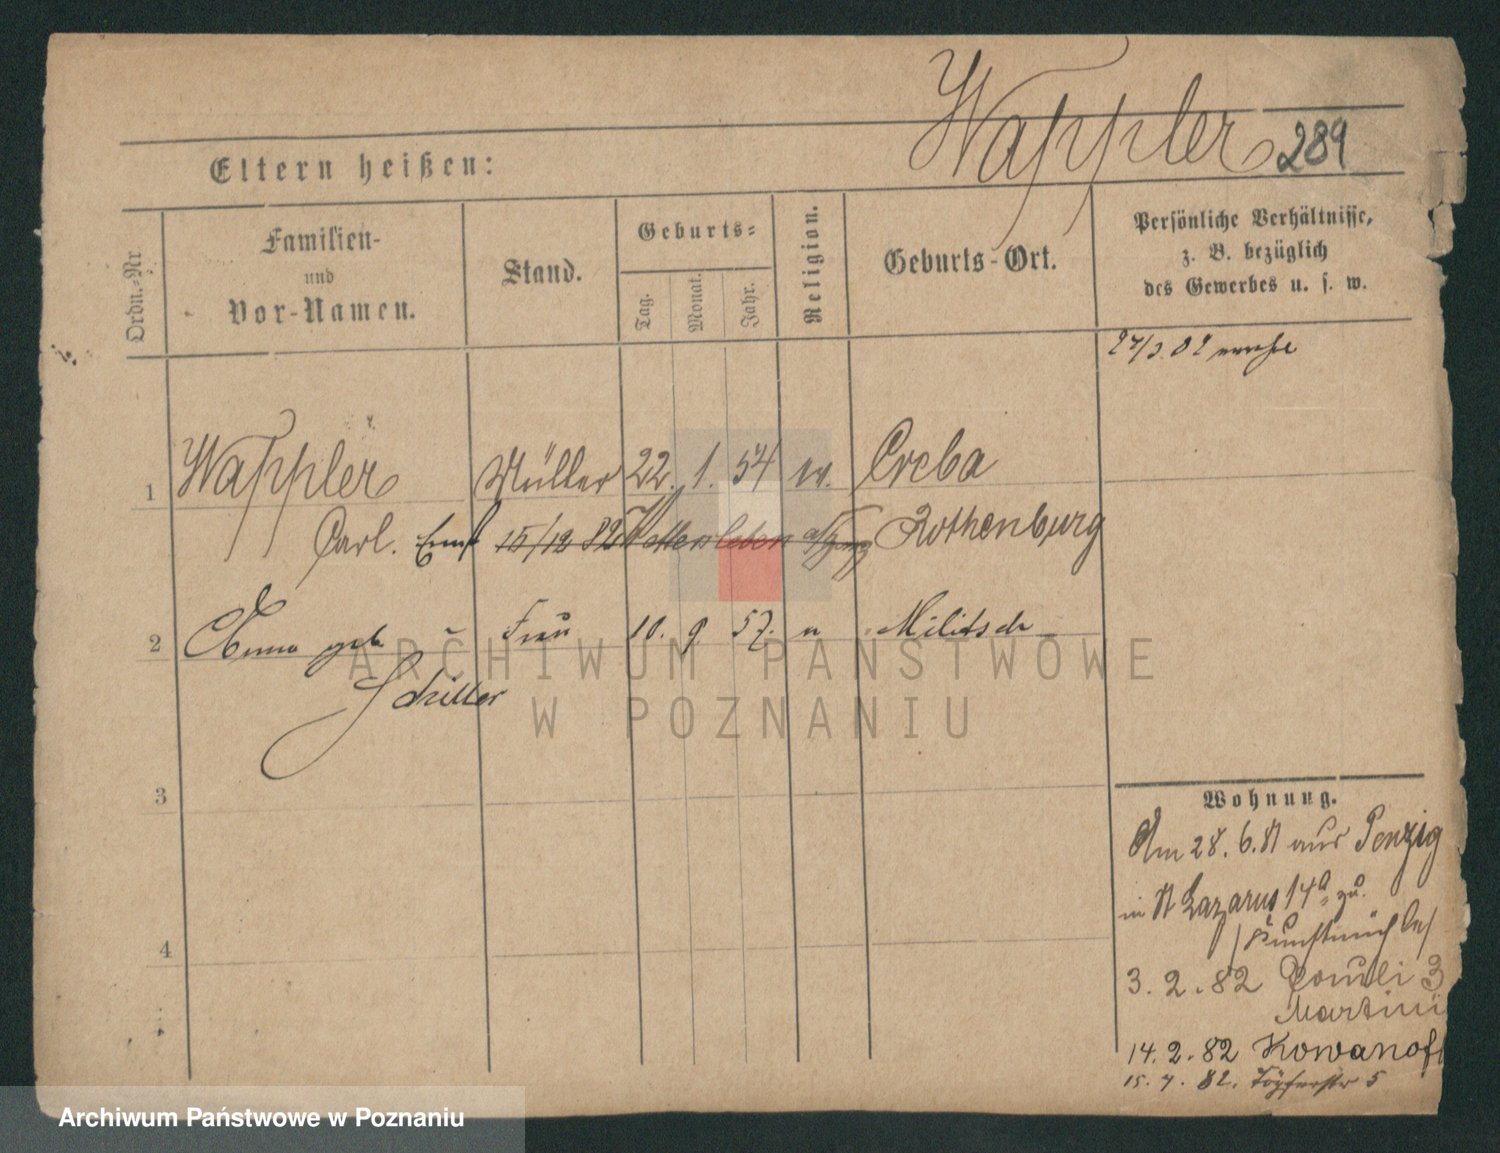 Wappler 289
Eltern heißen:
Ordn.-Nr
Familien-
und
Vor-Namen.
Stand.
Geburts-
Tag.
Monat.
Jahr.
Religion.
Geburts-Ort.
Persönliche Verhältnisse,
z. B. bezüglich
des Gewerbes u. s. w.
1 Wappler Müller 22. 1. 54 ev. Creba
Carl. Ernst 15/12 82 Rothenburg
2 Anna geb. Frau 10. 9 57. Militsch
Schiller
3
4
Wohnung.
Am 28.6.81 aus Penzig
in St Lazarus 14a zu.
3.2.82 Pauli 3
Martini
14.2.82 Kowanof
15.7.82. Töpferstr 5
ARCHIWUM PAŃSTWOWE
W POZNANIU
Archiwum Państwowe w Poznaniu